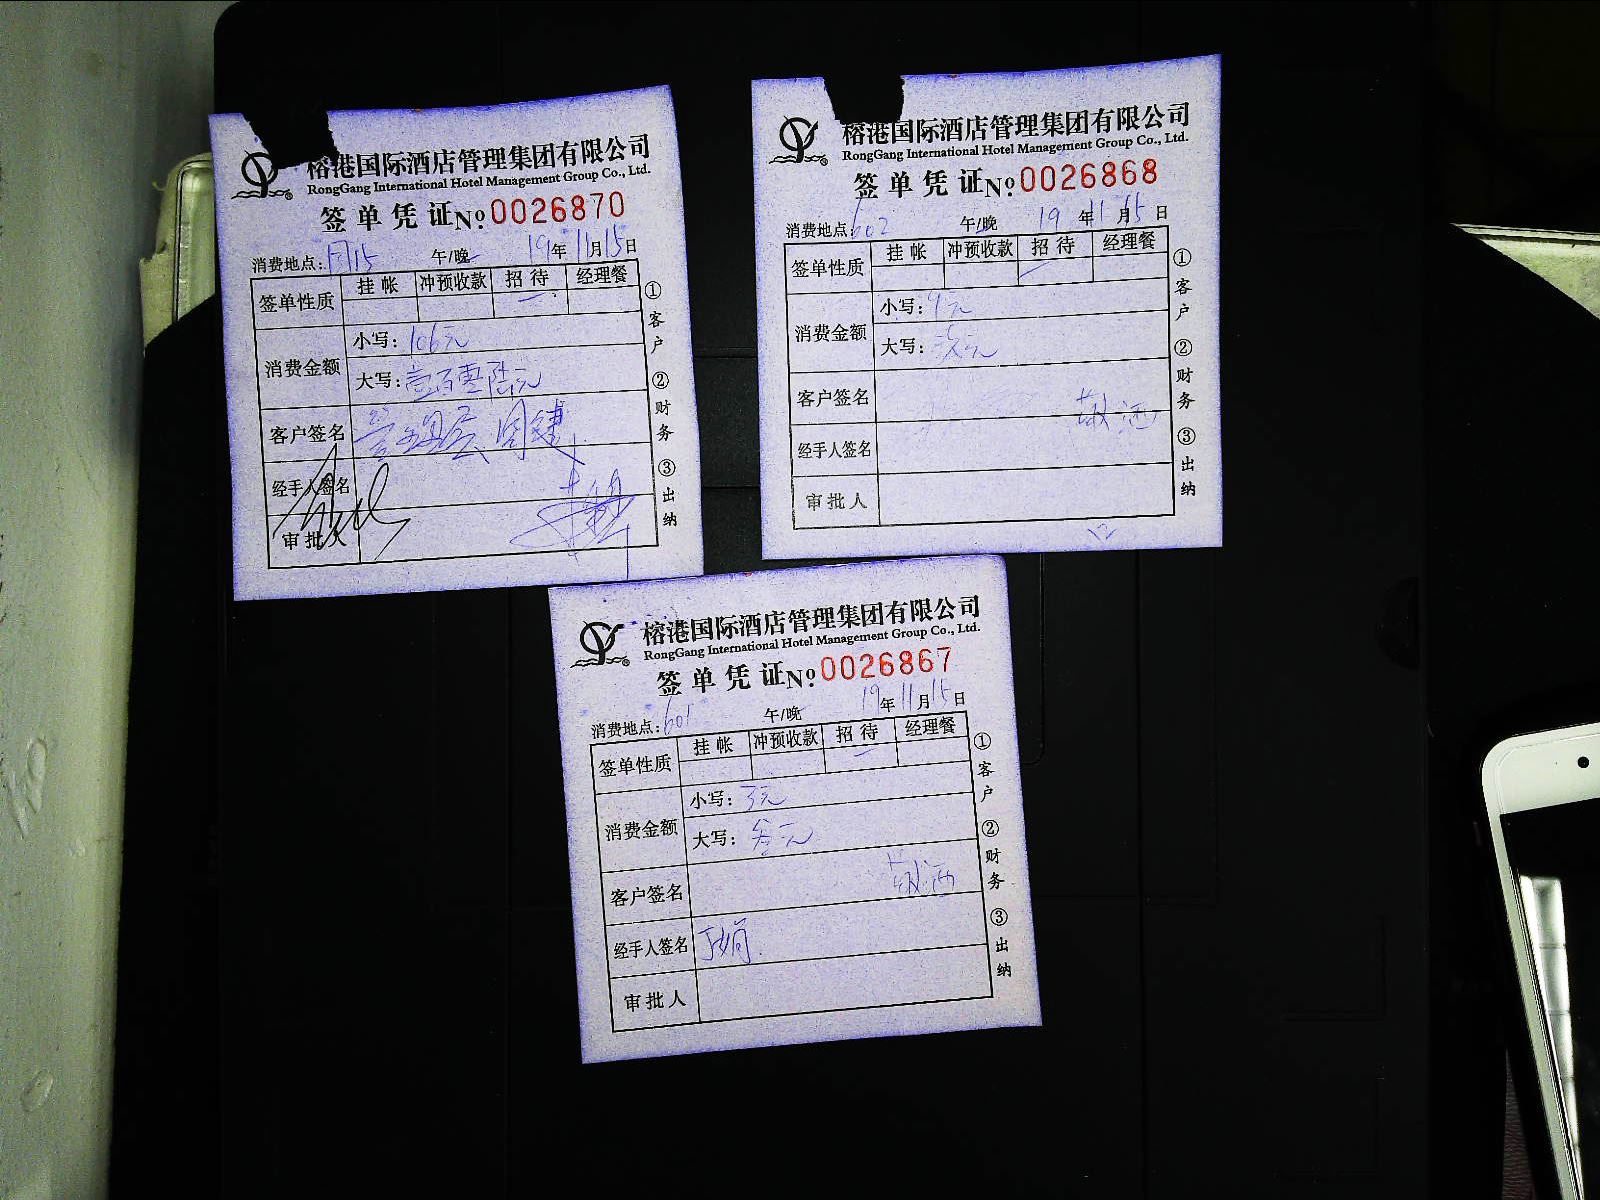 榕港国际酒店管理集团有限公司
RongGang International Hotel Management Group Co., Ltd.
签单凭证 No. 0026870
消费地点: 午/晚 19年11月15日
签单性质 挂帐 冲预收款 招待 经理餐
消费金额 小写: 106元
大写: 壹百零陆元
客户签名
经手人签名
审批人
①客户 ②财务 ③出纳
榕港国际酒店管理集团有限公司
RongGang International Hotel Management Group Co., Ltd.
签单凭证 No. 0026868
消费地点: 602 午/晚 19年11月15日
签单性质 挂帐 冲预收款 招待 经理餐
消费金额 小写: 9元
大写: 玖元
客户签名
经手人签名
审批人
①客户 ②财务 ③出纳
榕港国际酒店管理集团有限公司
RongGang International Hotel Management Group Co., Ltd.
签单凭证 No. 0026867
消费地点: 601 午/晚 19年11月15日
签单性质 挂帐 冲预收款 招待 经理餐
消费金额 小写: 3元
大写: 叁元
客户签名
经手人签名
审批人
①客户 ②财务 ③出纳